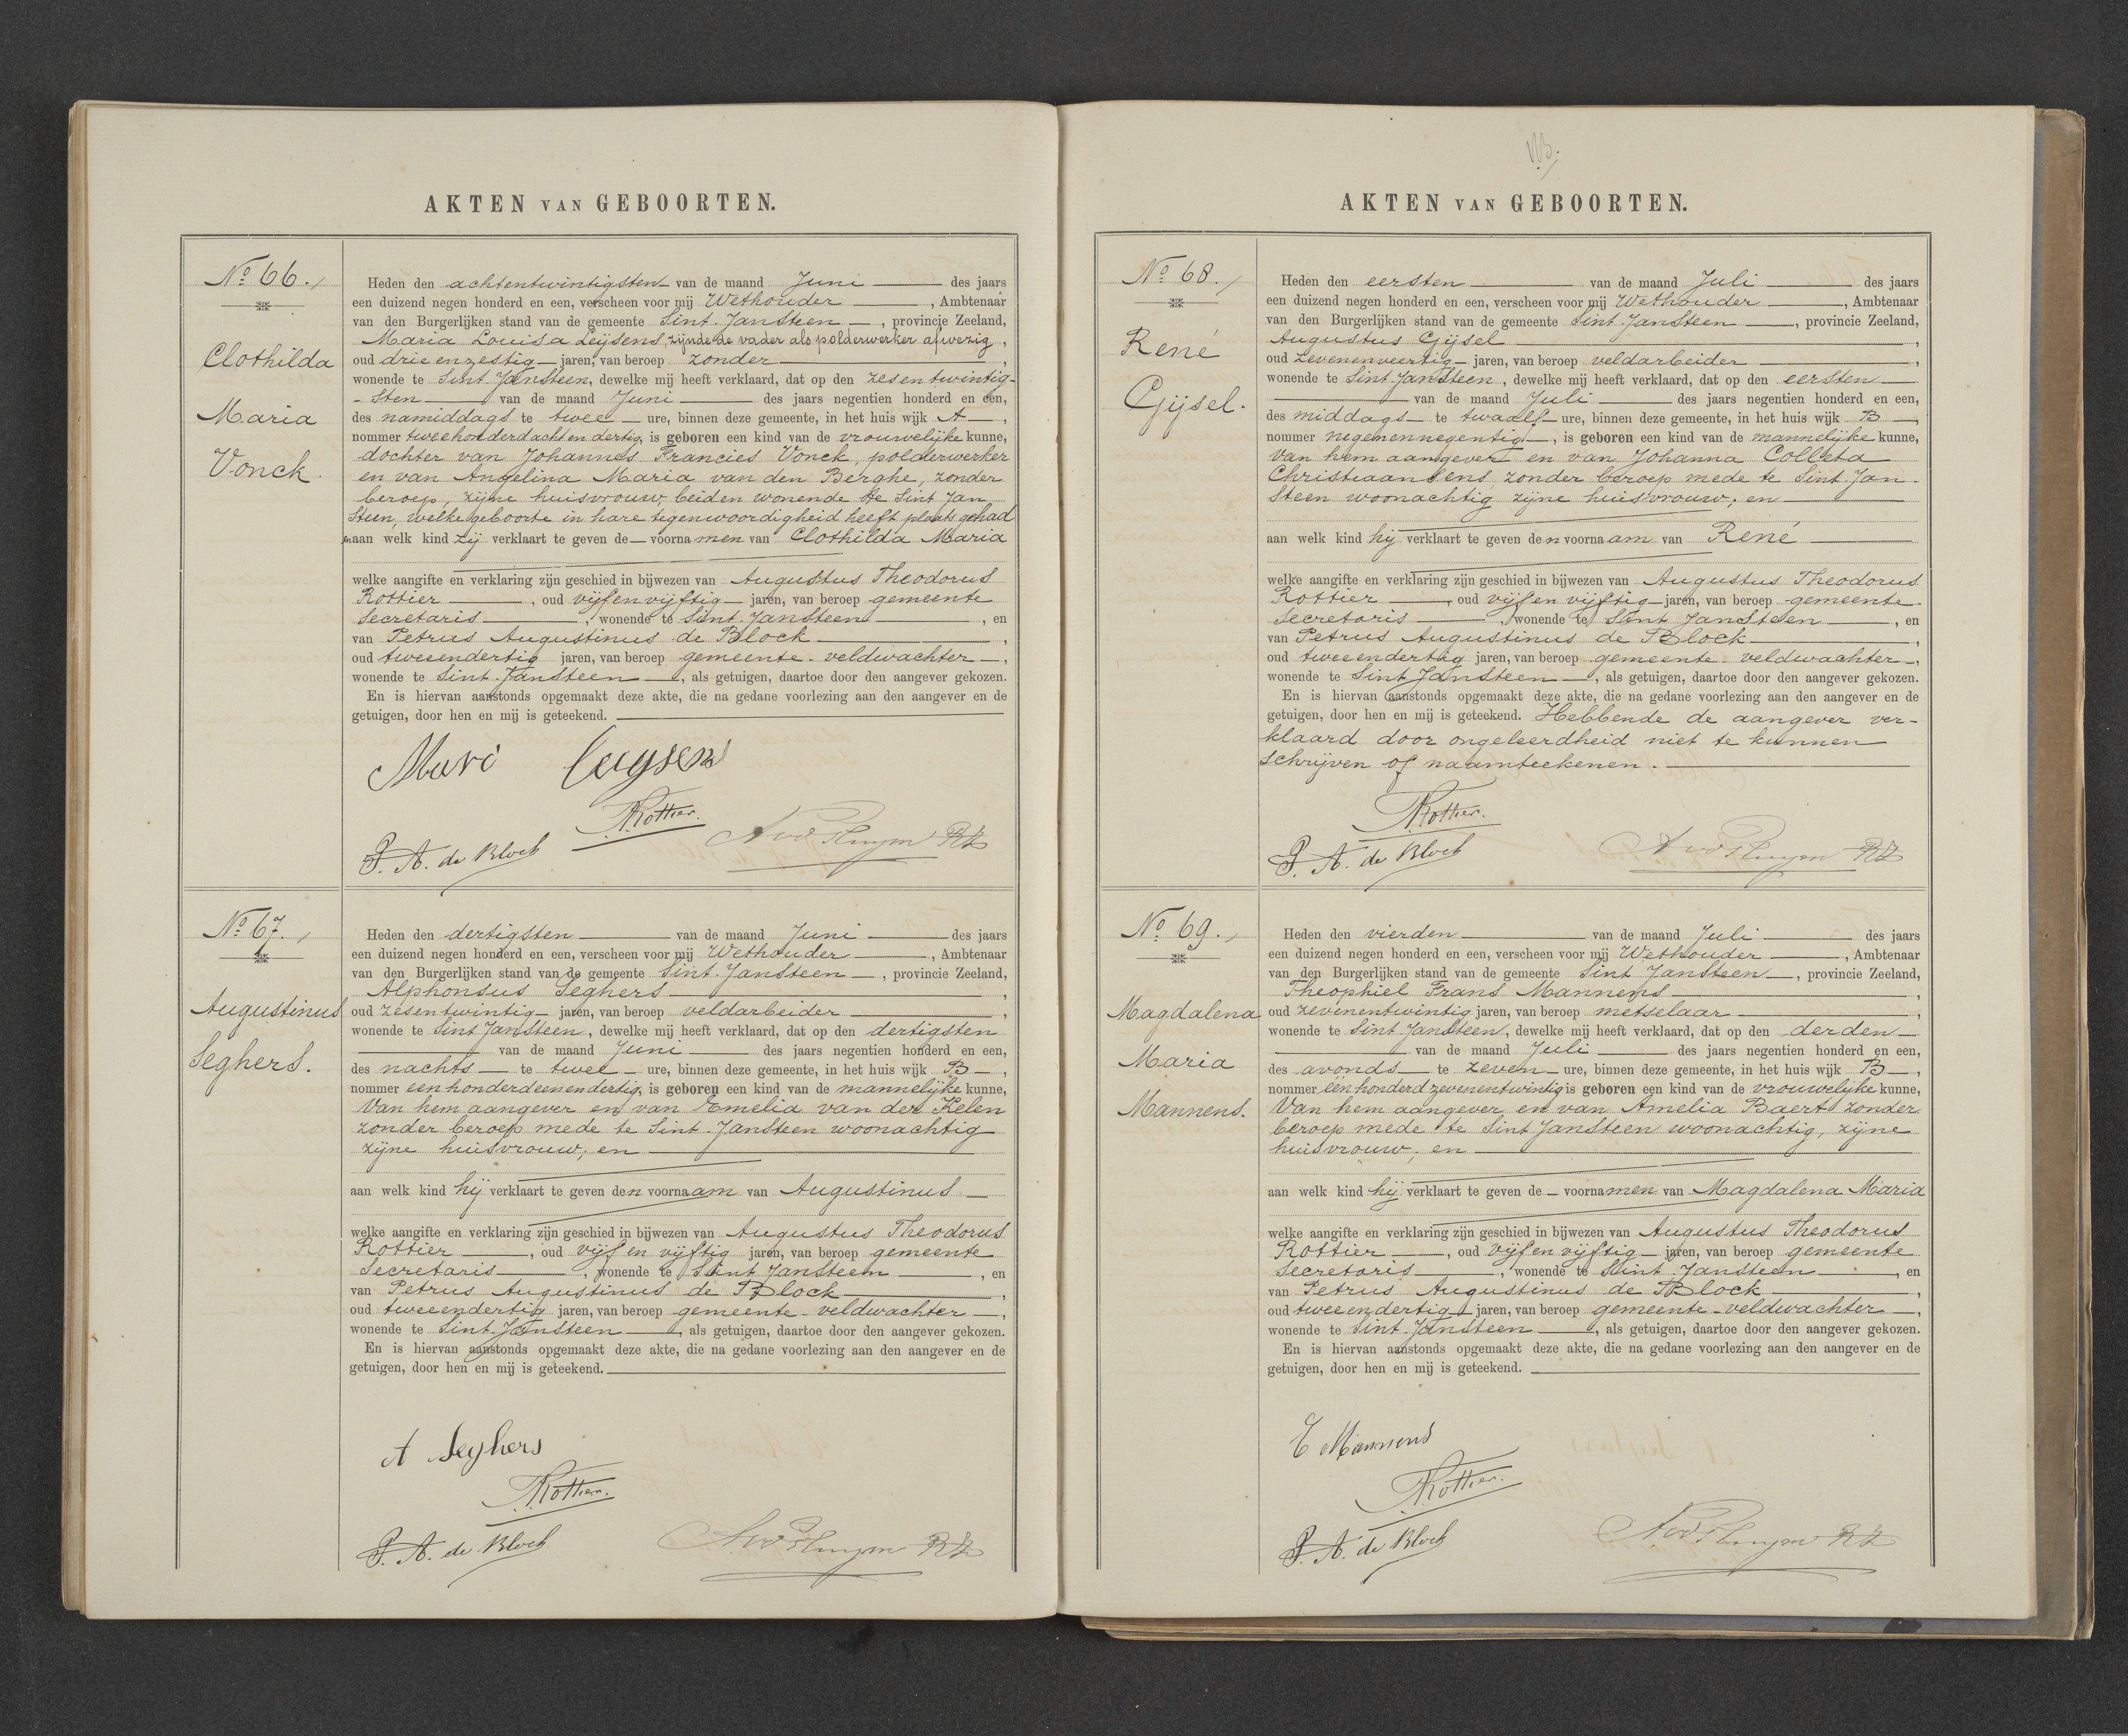 AKTEN VAN GEBOORTEN.
No 66.
Clothilda
Maria
Vonck.
Heden den achtentwintigsten van de maand Juni des jaars
een duizend negen honderd en een, verscheen voor mij Wethouder, Ambtenaar
van den Burgerlijken stand van de gemeente Sint Jansteen, provincie Zeeland,
Maria Louisa Leijsens, zijnde de vader als polderwerker afwezig,
oud drie en zestig jaren, van beroep zonder,
wonende te Sint Jansteen, dewelke mij heeft verklaard, dat op den zesentwintig-
-sten van de maand Juni des jaars negentien honderd en één,
des namiddags te twee ure, binnen deze gemeente, in het huis wijk A,
nommer tweehonderdachtendertig, is geboren een kind van de vrouwelijke kunne,
dochter van Johannes Francies Vonck, polderwerker
en van Angelina Maria van den Berghe, zonder
beroep, zijne huisvrouw, beiden wonende te Sint Jan
Steen, welke geboorte in hare tegenwoordigheid heeft plaats gehad
aan welk kind zij verklaart te geven de voornamen van Clothilda Maria
welke aangifte en verklaring zijn geschied in bijwezen van Augustus Theodorus
Rottier, oud vijf en vijftig jaren, van beroep gemeente
Secretaris, wonende te Sint Jansteen, en
van Petrus Augustinus de Block,
oud tweeendertig jaren, van beroep gemeente-veldwachter,
wonende te Sint Jansteen, als getuigen, daartoe door den aangever gekozen.
En is hiervan aanstonds opgemaakt deze akte, die na gedane voorlezing aan den aangever en de
getuigen, door hen en mij is geteekend.
Mari Leysens
Rottier.
P. A. de Block
No 67.
Augustinus
Seghers.
Heden den dertigsten van de maand Juni des jaars
een duizend negen honderd en een, verscheen voor mij Wethouder, Ambtenaar
van den Burgerlijken stand van de gemeente Sint Jansteen, provincie Zeeland,
Alphonsus Seghers,
oud zesentwintig jaren, van beroep veldarbeider,
wonende te Sint Jansteen, dewelke mij heeft verklaard, dat op den dertigsten
van de maand Juni des jaars negentien honderd en een,
des nachts te twee ure, binnen deze gemeente, in het huis wijk B,
nommer een honderdeenendertig, is geboren een kind van de mannelijke kunne,
Van hem aangever en van Emelia van der Kelen
zonder beroep mede te Sint Jansteen woonachtig
zijne huisvrouw; en
aan welk kind hij verklaart te geven den voornaam van Augustinus
welke aangifte en verklaring zijn geschied in bijwezen van Augustus Theodorus
Rottier, oud vijf en vijftig jaren, van beroep gemeente
Secretaris, wonende te Sint Jansteen, en
van Petrus Augustinus de Block,
oud tweeendertig jaren, van beroep gemeente-veldwachter,
wonende te Sint Jansteen, als getuigen, daartoe door den aangever gekozen.
En is hiervan aanstonds opgemaakt deze akte, die na gedane voorlezing aan den aangever en de
getuigen, door hen en mij is geteekend.
A Seghers
Rottier.
P. A. de Block
AKTEN VAN GEBOORTEN.
No 68.
René
Gijsel.
Heden den eersten van de maand Juli des jaars
een duizend negen honderd en een, verscheen voor mij Wethouder, Ambtenaar
van den Burgerlijken stand van de gemeente Sint Jansteen, provincie Zeeland,
Augustus Gijsel,
oud zevenenveertig jaren, van beroep veldarbeider,
wonende te Sint Jansteen, dewelke mij heeft verklaard, dat op den eersten
van de maand Juli des jaars negentien honderd en een,
des middags te twaalf ure, binnen deze gemeente, in het huis wijk B,
nommer negenennegentig, is geboren een kind van de mannelijke kunne,
van hem aangever en van Johanna Colleta
Christiaansens, zonder beroep mede te Sint Jan-
Steen woonachtig zijne huisvrouw; en
aan welk kind hij verklaart te geven den voornaam van René
welke aangifte en verklaring zijn geschied in bijwezen van Augustus Theodorus
Rottier, oud vijf en vijftig jaren, van beroep gemeente-
Secretaris, wonende te Sint Jansteen, en
van Petrus Augustinus de Block,
oud tweeendertig jaren, van beroep gemeente veldwachter,
wonende te Sint Jansteen, als getuigen, daartoe door den aangever gekozen.
En is hiervan aanstonds opgemaakt deze akte, die na gedane voorlezing aan den aangever en de
getuigen, door hen en mij is geteekend. Hebbende de aangever ver-
klaard door ongeleerdheid niet te kunnen
schrijven of naamteekenen.
Rottier.
P. A. de Block
No 69.
Magdalena
Maria
Mannens.
Heden den vierden van de maand Juli des jaars
een duizend negen honderd en een, verscheen voor mij Wethouder, Ambtenaar
van den Burgerlijken stand van de gemeente Sint Jansteen, provincie Zeeland,
Theophiel Frans Mannens,
oud zevenentwintig jaren, van beroep metselaar,
wonende te Sint Jansteen, dewelke mij heeft verklaard, dat op den derden
van de maand Juli des jaars negentien honderd en een,
des avonds te zeven ure, binnen deze gemeente, in het huis wijk B,
nommer één honderd zevenentwintig is geboren een kind van de vrouwelijke kunne,
Van hem aangever en van Amelia Baert zonder
beroep mede te Sint Jansteen woonachtig, zijne
huisvrouw; en
aan welk kind hij verklaart te geven de voornamen van Magdalena Maria
welke aangifte en verklaring zijn geschied in bijwezen van Augustus Theodorus
Rottier, oud vijf en vijftig jaren, van beroep gemeente
Secretaris, wonende te Sint Jansteen, en
van Petrus Augustinus de Block,
oud tweeendertig jaren, van beroep gemeente-veldwachter,
wonende te Sint Jansteen, als getuigen, daartoe door den aangever gekozen.
En is hiervan aanstonds opgemaakt deze akte, die na gedane voorlezing aan den aangever en de
getuigen, door hen en mij is geteekend.
Mannens
Rottier.
P. A. de Block